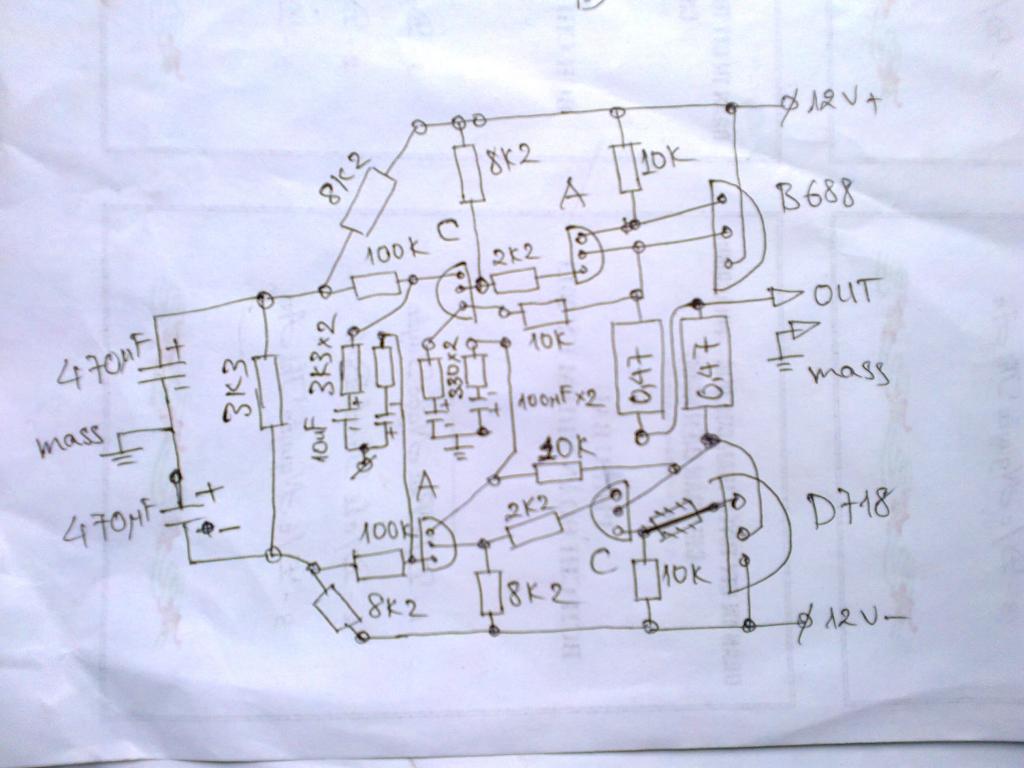 12V+
8K2
8K2
10K
A
B688
C
100K
2K2
OUT
10K
mass
470µF
+
3K3
3K3x2
330x2
0,47
0,47
10µF
+
+
100µFx2
mass
10K
A
470µF
+
-
2K2
D718
100K
C
8K2
8K2
10K
12V-